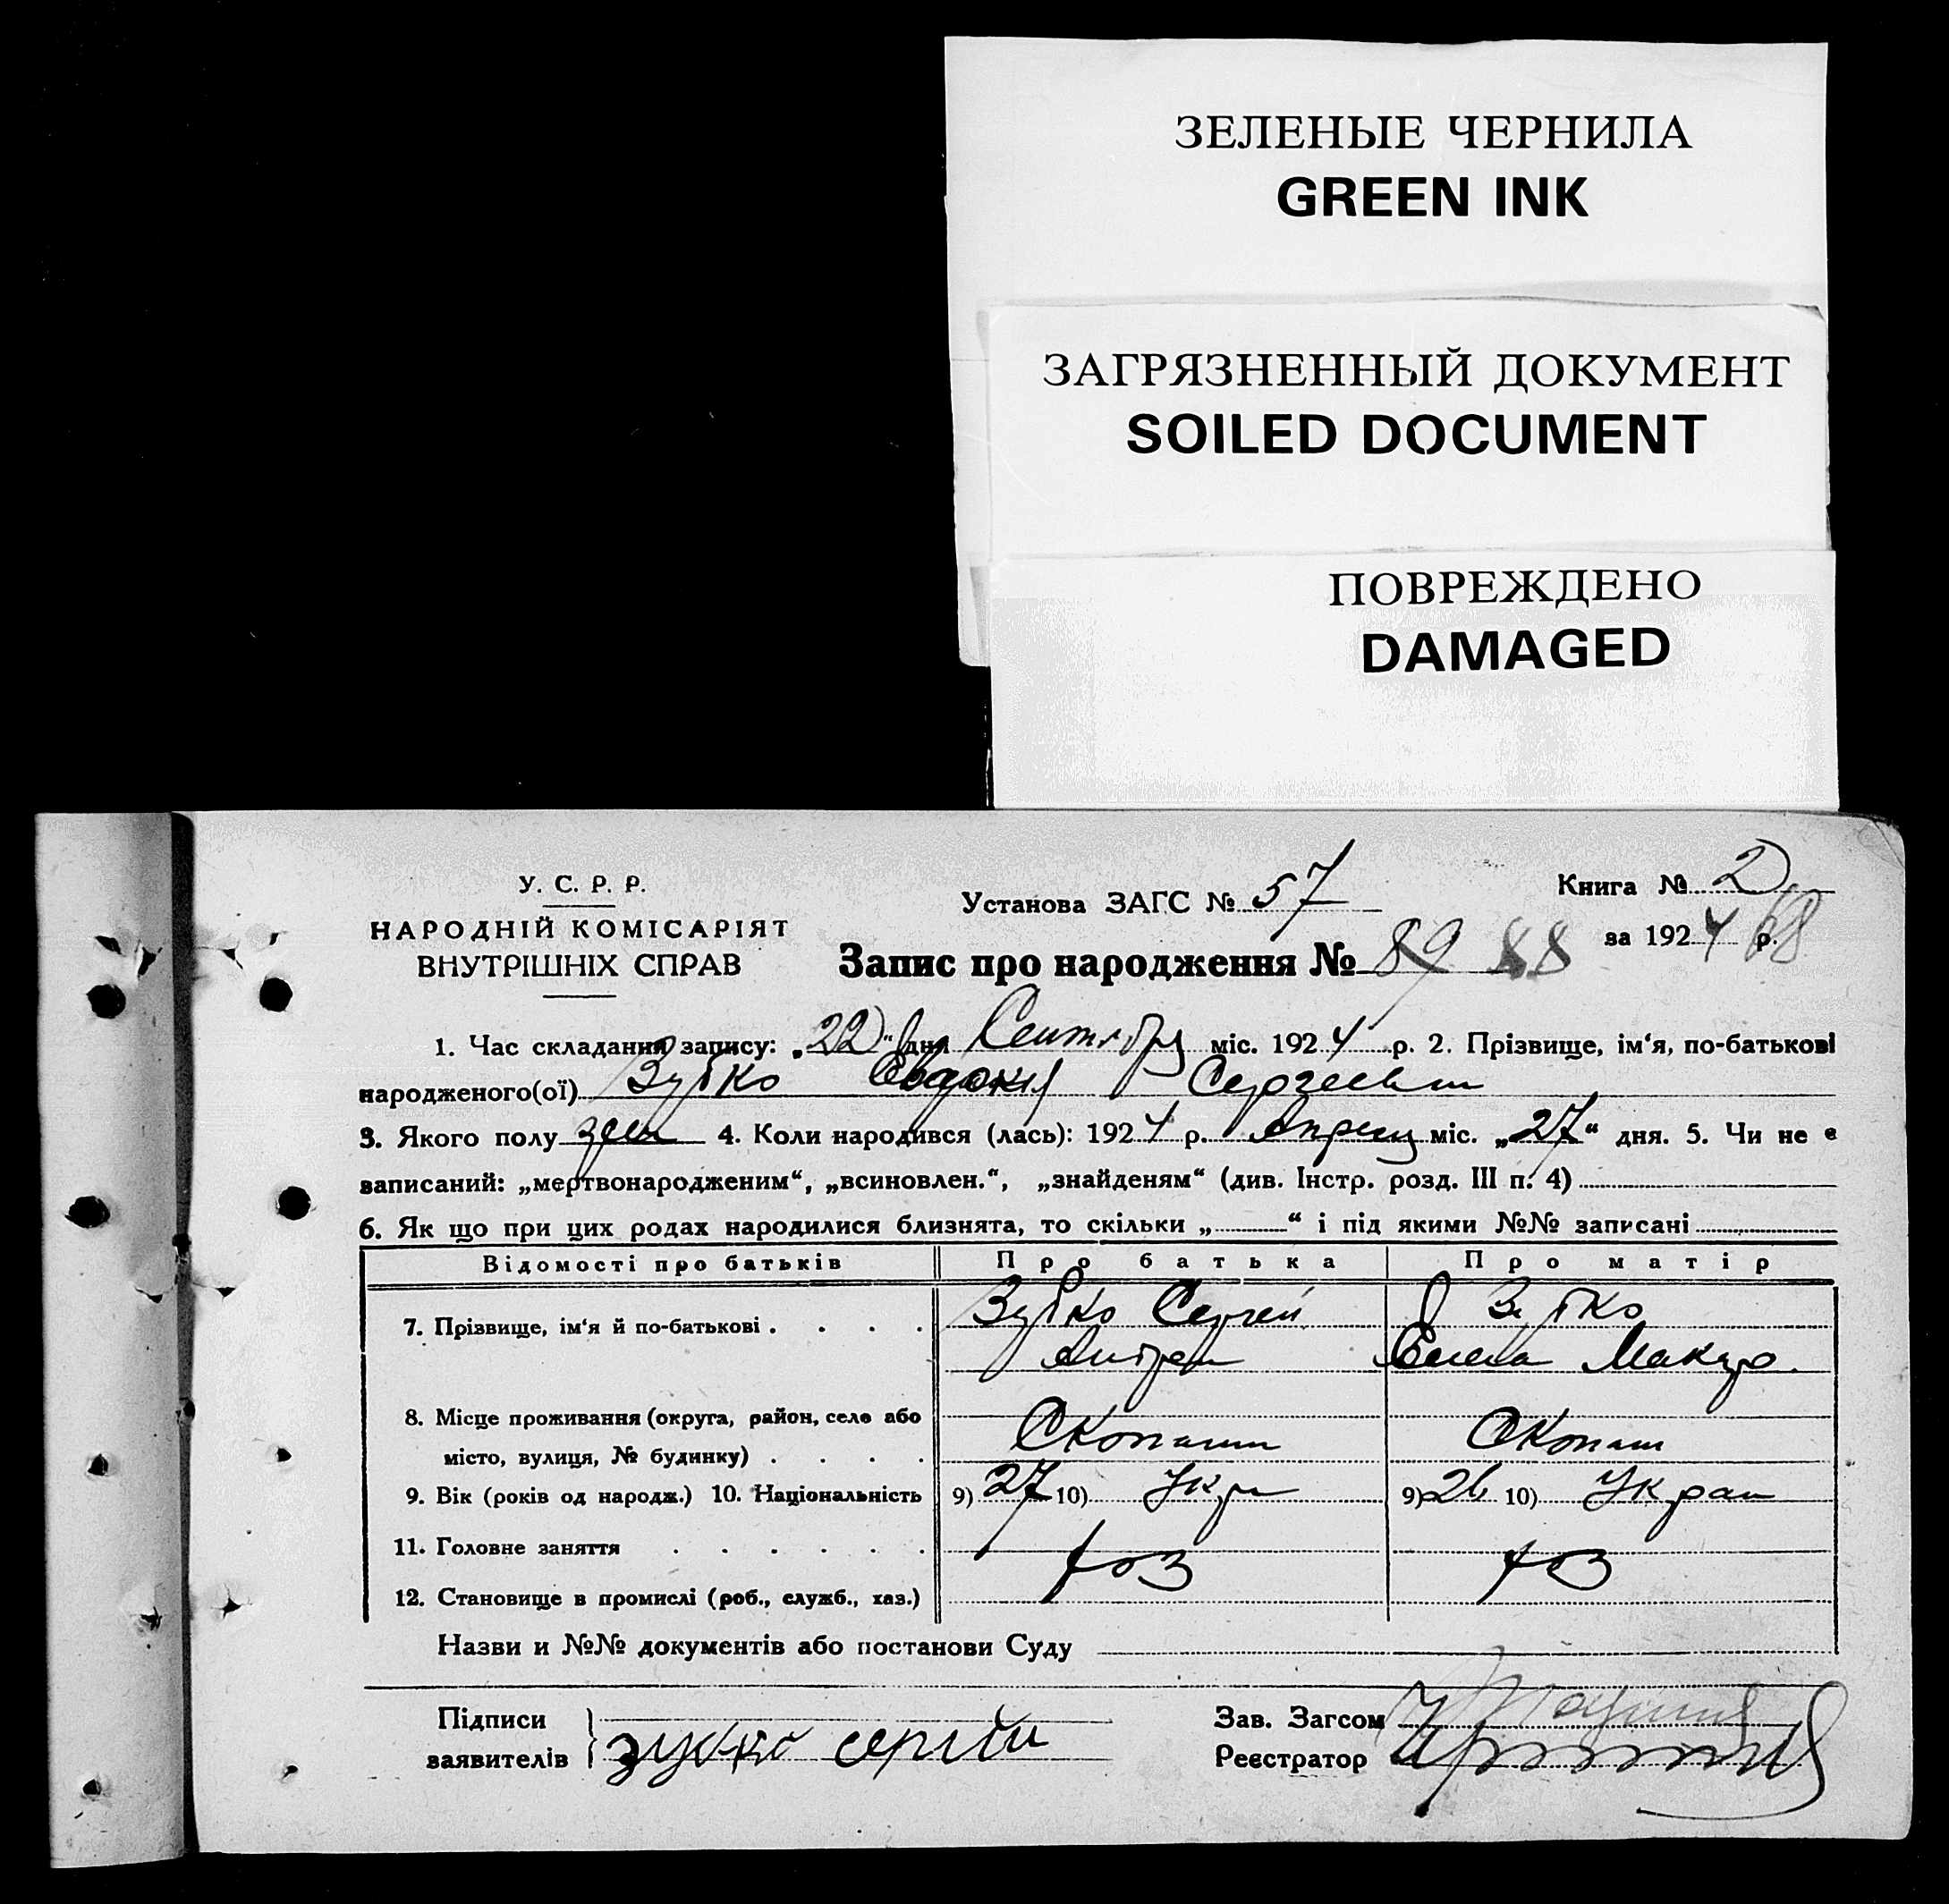 ЗЕЛЕНЫЕ ЧЕРНИЛА
GREEN INK
ЗАГРЯЗНЕННЫЙ ДОКУМЕНТ
SOILED DOCUMENT
ПОВРЕЖДЕНО
DAMAGED
У. С. Р. Р.
НАРОДНІЙ КОМІСАРІЯТ
ВНУТРІШНІХ СПРАВ
Установа ЗАГС № 57
Книга № 2
за 1924 р. 68
Запис про народження № 89 88
1. Час складання запису: „22" дня Сентября міс. 1924 р. 2. Прізвище, ім'я, по-батькові
народженого(ої) Зубко Евдокия Сергеевн
3. Якого полу жен 4. Коли народився (лась): 1924 р. Апреля міс. „27" дня. 5. Чи не є
записаний: „мертвонародженим", „всиновлен.", „знайденям" (див. Інстр. розд. III п. 4)
6. Як що при цих родах народилися близнята, то скільки „ " і під якими №№ записані
Відомості про батьків Про батька Про матір
7. Прізвище, ім'я й по-батькові . . . . Зубко Сергей Зубко
Андреи Елена Макаро
8. Місце проживання (округа, район, село або
місто, вулиця, № будинку) . . . . Скопаши Скопаш
9. Вік (років од народж.) 10. Національність 9) 27 10) Укра 9) 26 10) Украи
11. Головне заняття . . . . . . хоз хоз
12. Становище в промислі (роб., служб., хаз.)
Назви и №№ документів або постанови Суду
Підписи
заявителів зубко сергій
Зав. Загсом
Реєстратор